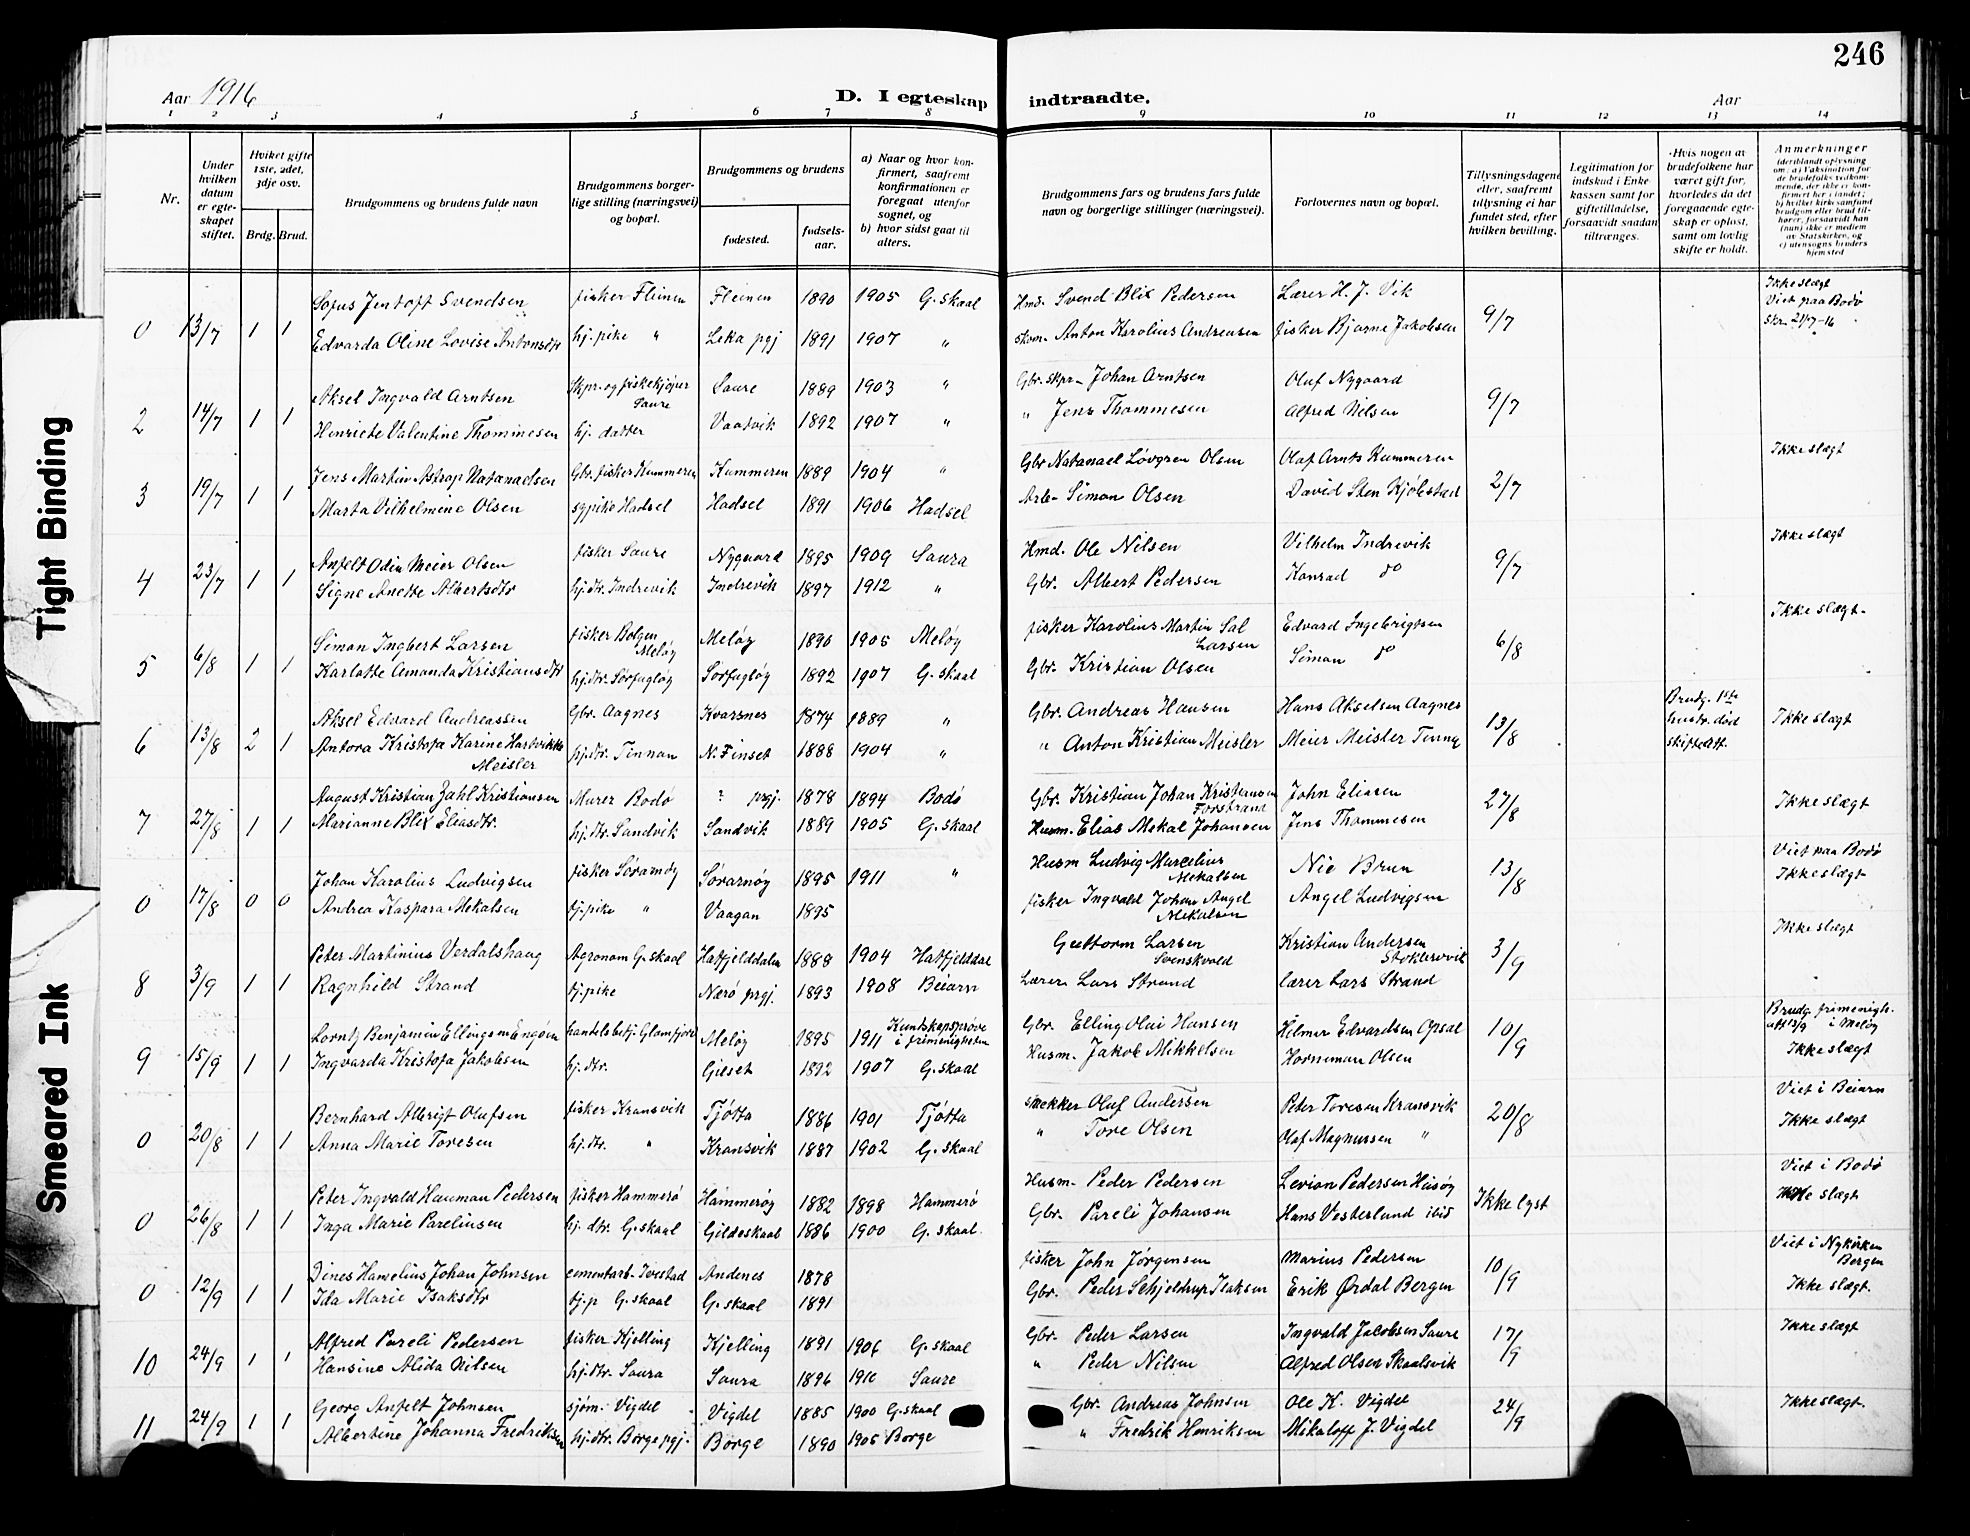 246
Aar 1916
D. I egteskap indtraadte.
Aar
1 2 3 4 5 6 7 8 9 10 11 12 13 14
Nr.
Under hvilken datum er egteskapet stiftet.
Hvilket gifte 1ste, 2det, 3dje osv.
Brdg. Brud.
Brudgommens og brudens fulde navn
Brudgommens borgerlige stilling (næringsvei) og bopæl.
Brudgommens og brudens
fødested.
fødselsaar.
a) Naar og hvor konfirmert, saafremt konfirmationen er foregaat utenfor sognet, og
b) hvor sidst gaat til alters.
Brudgommens fars og brudens fars fulde navn og borgerlige stillinger (næringsvei).
Forlovernes navn og bopæl.
Tillysningsdagene eller, saafremt tillysning ei har fundet sted, efter hvilken bevilling.
Legitimation for indskud i Enkekassen samt for giftetilladelse, forsaavidt saadan tiltrænges.
Hvis nogen av brudefolkene har været gift før, hvorledes da det foregaaende egteskap er opløst, samt om lovlig skifte er holdt.
Anmerkninger (deriblandt oplysning om: a) Vaksination for de brudefolks vedkommende, der ikke er konfirmert her i landet; b) hvilket kirkesamfund brudgom eller brud tilhører, forsaavidt han (hun) ikke er medlem av Statskirken, og c) utensogns bruders hjemsted
0 13/7 1 1 Sofus Jentoft Svendsen fisker Fleinen Fleinen 1890 1905 G.skaal Hmd. Svend Blix Pedersen Lærer H. J. Vik 9/7 Ikke slægt Viet paa Bodø Skr. 21/7-16
Edvarda Oline Lovise Antonsdtr hj. pike " Leka pgj 1891 1907 " skom. Anton Karolius Andreasen fisker Bjarne Jakobsen
2 14/7 1 1 Aksel Ingvald Arntsen Skpr. og fiskekjøper Saure Saure 1889 1903 " Gbr. skpr. Johan Arntsen Oluf Nygaard 9/7
Henriete Valentine Thommesen hj. datter Vaatvik 1892 1907 " " Jens Thommesen Alfred Nilsen
3 19/7 1 1 Jens Martin Astrup Natanaelsen Gbr. fisker Kummeren Kummeren 1889 1904 " Gbr Natanael Løvgren Olsen Olaf Arnts Kummeren 2/7 Ikke slægt
Marta Vilhelmine Olsen sypike Hadsel Hadsel 1891 1906 Hadsel Arb. Simon Olsen David Sten Kjølstad
4 23/7 1 1 Anfelt Odin Meier Olsen fisker Saure Nygaard 1895 1909 Saura Hmd. Ole Nilsen Vilhelm Indrevik 9/7 Ikke slægt
Signe Anette Albertsdtr hj. dtr. Indrevik Indrevik 1897 1912 " Gbr. Albert Pedersen Konrad do
5 6/8 1 1 Simon Ingbert Larsen fisker Bolgen Meløy Meløy 1890 1905 Meløy fisker Karolius Martin Sal Larsen Edvard Ingebrigtsen 6/8 Ikke slægt.
Karlotte Amanda Kristiansdtr hj.dtr. Sørfugløy Sørfugløy 1892 1907 G.skaal Gbr. Kristian Olsen Simon do
6 13/8 2 1 Aksel Edvard Andreassen Gbr. Aagnes Kvarsnes 1874 1889 " Gbr. Andreas Hansen Hans Akselsen Aagnes 13/8 Brudg. 1ste hustr. død skiftedtt. Ikke slægt
Antora Kristofa Karine Hartvikke Meisler hj.dtr. Finnan N. Finset 1888 1904 " " Anton Kristian Meisler Meier Meisler
7 27/8 1 1 August Kristian Zahl Kristiansen Murer Bodø ? prgj. 1878 1894 Bodø Gbr. Kristian Johan Kristiansen Forstrand John Eliasen 27/8 Ikke slægt
Marianne Blix Eliasdtr. hj.dtr. Sandvik Sandvik 1889 1905 G.skaal Husm. Elias Mekal Johansen Jens Thommesen
0 17/8 0 0 Johan Karolius Ludvigsen fisker Sørarnøy Sørarnøy 1895 1911 " Husm Ludvig Marcelius Mekalsen Nic Brun 13/8 Viet paa Bodø Ikke slægt
Andrea Kaspara Mekalsen tj.pike " Vaagan 1895 fisker Ingvald Johan Angel Mekalsen Angel Ludvigsen
8 3/9 1 1 Peter Martinius Verdalshaug Agronom G.skaal Hatfjelddalen 1888 1904 Hatfjelddal Guttorm Larsen Svenskvold Kristian Andersen 3/9 Ikke slægt
Ragnhild Strand tj.pike Nærø prgj. 1893 1908 Beiarn Lærer Lars Strand lærer Lars Strand
9 15/9 1 1 Lorntz Benjamin Ellingsen Engøien handelsbetj. Glomfjord Meløy 1895 1911 Kundskapsprøve i frimenigheten Gbr. Elling Olai Hansen Hilmer Edvardsen Opsal 10/9 Brudg. frimenigh. att 13/9 i Meløy Ikke slægt
Ingvarda Kristofa Jakobsen hj.dtr. Gieset 1892 1907 G.skaal Husm. Jakob Mikkelsen Horneman Olsen
0 20/8 1 1 Bernhard Albrigt Olufsen fisker Kransvik Tjøtta 1886 1901 Tjøtta snekker Oluf Andersen Peter Toresen Kransvik 20/8 Viet i Beiarn Ikke slægt
Anna Marie Toresen hj.dtr. " Kransvik 1887 1902 G.skaal " Tore Olsen Olaf Magnussen "
0 26/8 1 1 Peter Ingvald Hauman Pedersen fisker Hammerø Hammerøy 1882 1898 Hammerø Husm. Peder Pedersen Levion Pedersen Husøy Ikke lyst Viet i Bodø Ikke slægt
Inga Marie Parelinsen hj. dtr. G.skaal Gildeskaal 1886 1900 G.skaal. Gbr. Pareli Johansen Hans Vesterlund ibid
0 12/9 1 1 Dines Hamelius Johan Johnsen cementarb. Ivestad Andenes 1878 fisker John Jørgensen Marius Pedersen 10/9 Viet i Nykirken Bergen Ikke slægt.
Ida Marie Isaksdtr tj.p G.skaal G.skaal 1891 Gbr. Peder Schjeldrup Isaksen Erik Ørdal Bergen
10 24/9 1 1 Alfred Pareli Pedersen fisker Kjelling Kjelling 1891 1906 G.skaal Gbr. Peder Larsen Ingvald Jacobsen Saure 17/9 Ikke slægt
Hansine Alida Nilsen hj.dtr. Saura Saura 1896 1910 Saure " Peder Nilsen Alfred Olsen Skaalsvik
11 24/9 1 1 Georg Anfelt Johnsen sjøm. Vigdel Vigdel 1885 1900 G.skaal Gbr. Andreas Johnsen Ole K. Vigdel 24/9 Ikke slægt.
Albertine Johanna Fredriksen hj.dtr. Borge pgj. Borge 1890 1905 Borge " Fredrik Henriksen Mikaloff J. Vigdel
Tight Binding
Smeared Ink